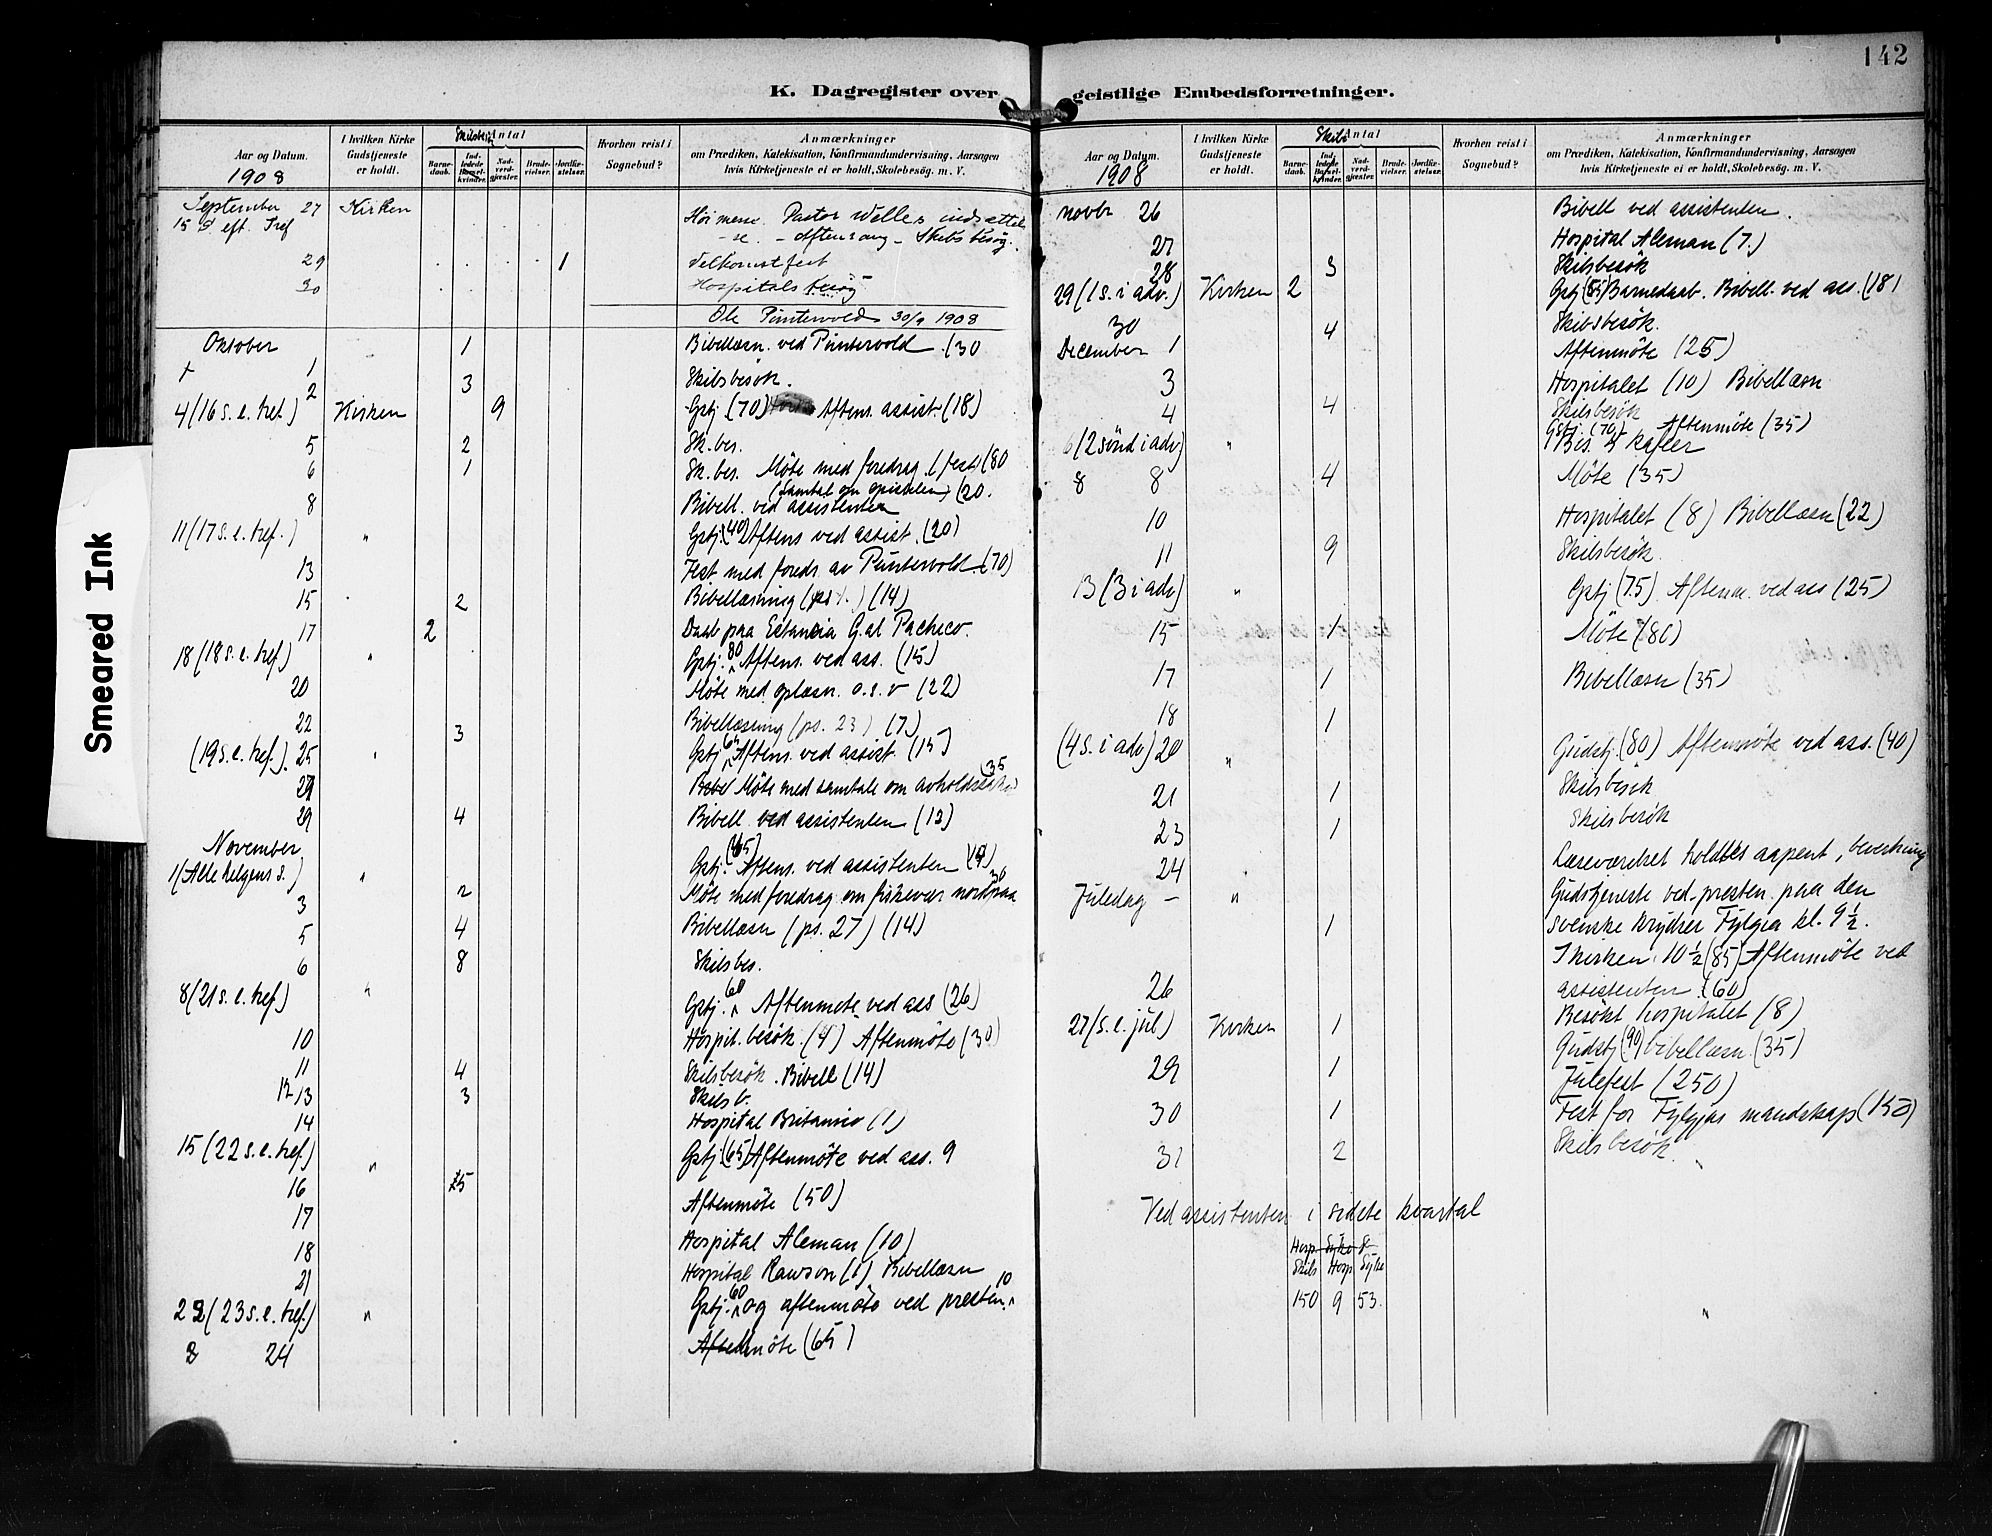 142
K. Dagregister over geistlige Embedsforretninger.
Smeared Ink
Aar og Datum.
1908
I hvilken Kirke Gudstjeneste er holdt.
Antal
Barnedaab.
Indledede Barselkvinder.
Nadverdgjæster.
Brudevielser.
Jordfæstelser.
Hvorhen reist i Sognebud?
Anmærkninger
om Prædiken, Katekisation, Konfirmandundervisning, Aarsagen
hvis Kirketjeneste ei er holdt, Skolebesøg. m. V.
September 27 Kirken Höimesse. Pastor Welles indsættel-
15 S eft. Tref - se. - Aftensang - Skibsbesøg.
29 1 Velkomstfest
30 Hospitalsbesøg
Ole Püntervold 30/9 1908
Oktober 1 Bibellæsn. ved Püntervold (30
1 3 Skibsbesök.
2
4 (16 s. e. tref.) Kirken 9 Gstj (70) Aftens. assist. (18)
5 2 Sk. bes.
6 1 Sk. bes. Möte med foredrag. (fest) (80
(Samtal om epistelen) (20.
8 Bibell. ved assistenten
11 (17 s. e. tref.) " Gstj. (40) Aftens ved assist. (20)
13 Fest med foredr. av Püntervold (70)
15 2 Bibellæsning (ps 1.) (14)
17 2 Daab paa Estancia G.al Pacheco.
18 (18 s. e. tref) " Gstj. 80 Aftens. ved ass. (15)
20 Möte med oplæsn. o.s.v (22)
22 3 Bibellæsning (ps. 23) (7)
(19 s. e. tref.). 25 " Gstj. 65 Aftens. ved assist. (15)
27 Bibel Möte med samtale om (35
29 4 Bibell. ved assistenten (13)
November
1 (Alle helgens s.) " Gstj. (65) Aftens. ved assistenten
3 2 Möte med foredrag om fiskevær nordpaa 30
5 4 Bibellæsn (ps. 27) (14)
6 8 Skibsbes.
8 (21 s. e. tref) " Gstj. 60 Aftenmöte ved ass (26)
10 Hospit. besök. (4) Aftenmöte (30)
11 4 Skibsbesök. Bibell (14)
12 13 3 Skibs b.
14 Hospital Britanico (1)
15 (22 s. e. tref.) " Gstj (65) Aftenmöte ved ass. 9
16 5
17 Aftenmöte (50)
18 Hospital Aleman (10)
21 Hospital Rawson (1) Bibellæsn 10
22 (23 s. e. tref.) " Gstj. 60 og aftenmöte ved presten.
24 Aftenmöte (65)
Aar og Datum.
1908
I hvilken Kirke Gudstjeneste er holdt.
Skibs Antal
Barnedaab.
Indledede Barselkvinder.
Nadverdgjæster.
Brudevielser.
Jordfæstelser.
Hvorhen reist i Sognebud?
Anmærkninger
om Prædiken, Katekisation, Konfirmandundervisning, Aarsagen
hvis Kirketjeneste ei er holdt, Skolebesøg. m. V.
novbr 26 Bibell ved assistenten.
27 Hospital Aleman (7.)
28 3 Skibsbesök
29 (1 s. i adv.) Kirken 2 Gstj (55) Barnedaab. Bibell. ved ass. (18)
30 4 Skibsbesök.
December 1 Aftenmöte (25)
3 Hospitalet (10) Bibellæsn
4 4 Skibsbesök
6 (2 sönd i adv) " Gstj. (70) Aftenmöte (35)
8 8 4 Möte (35)
10 Hospitalet (8) Bibellæsn (22)
11 9 Skibsbesök.
13 (3 i adv) " Gstj (75). Aftenm. ved ass (25)
15 1 Möte (80)
17 1 Bibellæsn (35)
18 1
(4 s. i adv) 20 " Gudstj. (80) Aftenmöte ved ass. (40)
21 1 Skibsbesök
23 1 Skibsbesök
24 Læseværelset holdtes aapent, bevertning
Juledag - " Gudstjeneste ved presten paa den
1 svenske krydser Fylgia kl. 9 1/2.
I kirken. 10 1/2 (85) Aftenmöte ved
26 assistenten (60)
Besökt hospitalet (8)
27 (s. e. jul) Kirken 1 Gudstj (90) bibellæsn. (35)
29 1 Julefest (250)
30 1 Fest for Fylgias mandskap (150)
31 2 Skibsbesök.
Ved assistenten i sidste kvartal
Hosp. Syke
Skibs Hosp Syke
150 9 53.
"